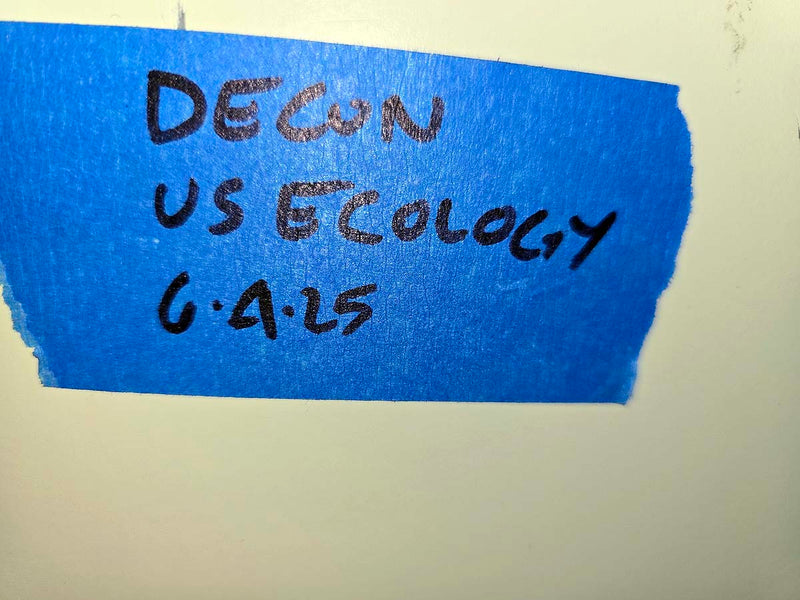 DECON
US ECOLOGY
6.9.25